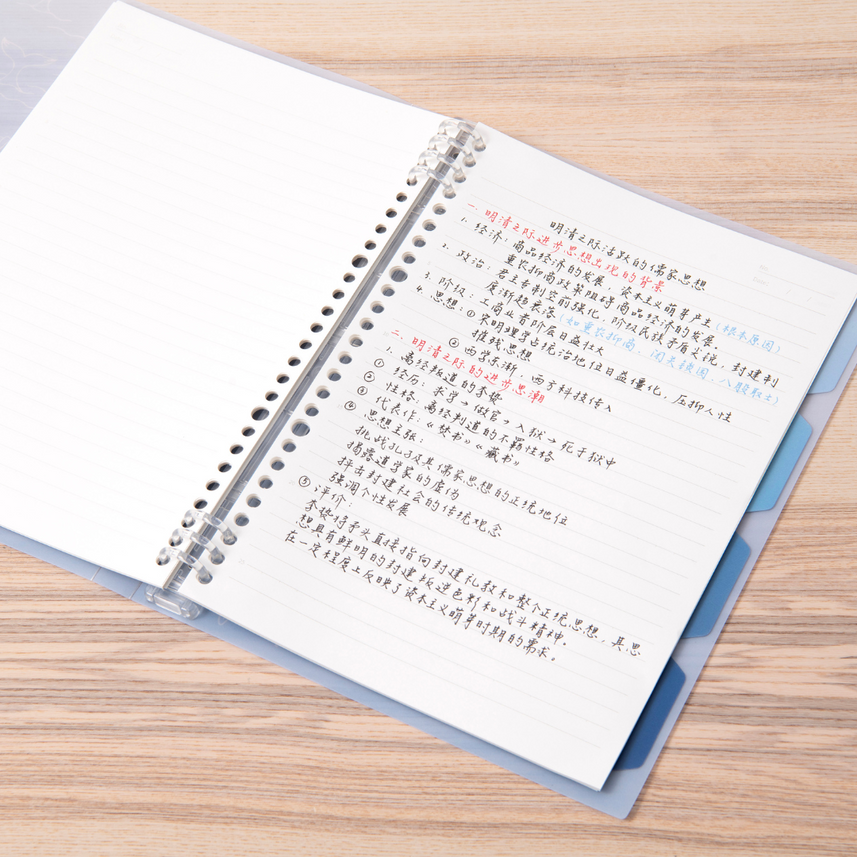 明清之际活跃的儒家思想
一、明清之际进步思想出现的背景
1. 经济：商品经济的发展，资本主义萌芽产生（根本原因）
重农抑商政策阻碍商品经济的发展。
2. 政治：君主专制空前强化，阶级民族矛盾尖锐，封建制
度渐趋衰落（如重农抑商、闭关锁国、八股取士）
3. 阶级：工商业者阶层日益壮大
4. 思想：①宋明理学占统治地位日益僵化，压抑人性
摧残思想
②西学东渐，西方科技传入
二、明清之际的进步思潮
1. 离经叛道的李贽
① 经历：求学→做官→入狱→死于狱中
② 性格：离经判道的不羁性格
③ 代表作：《焚书》《藏书》
④ 思想主张：
挑战孔子及其儒家思想的正统地位
揭露道学家的虚伪
抨击封建社会的传统观念
强调个性发展
⑤ 评价：
李贽将矛头直接指向封建礼教和整个正统思想，其思
想具有鲜明的封建叛逆色彩和战斗精神。
在一定程度上反映了资本主义萌芽时期的需求。